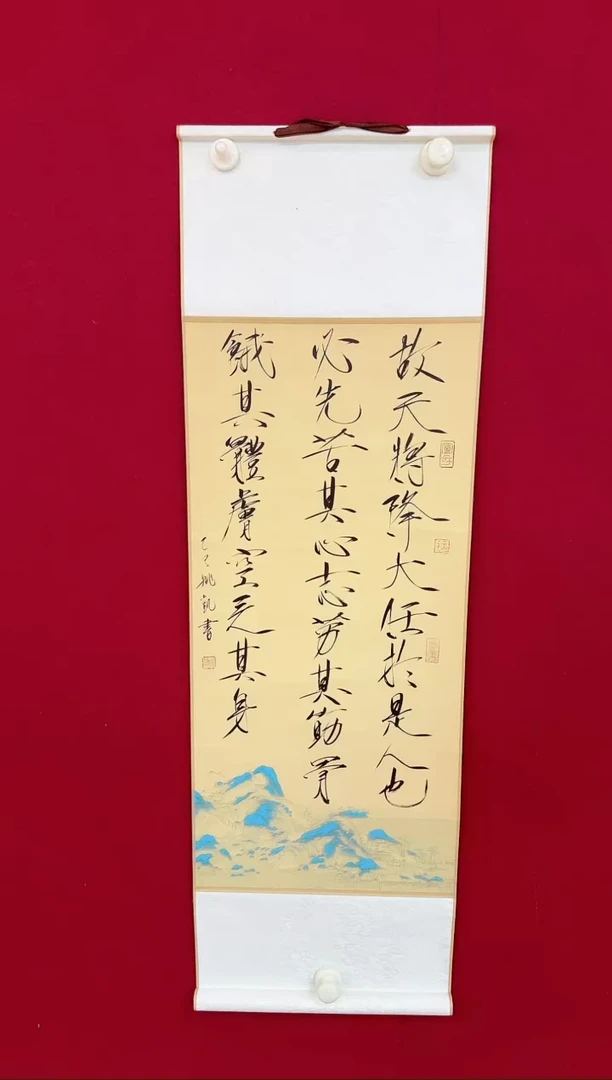 故天將降大任於是人也
必先苦其心志勞其筋骨
餓其體膚空乏其身
乙巳姚凱書